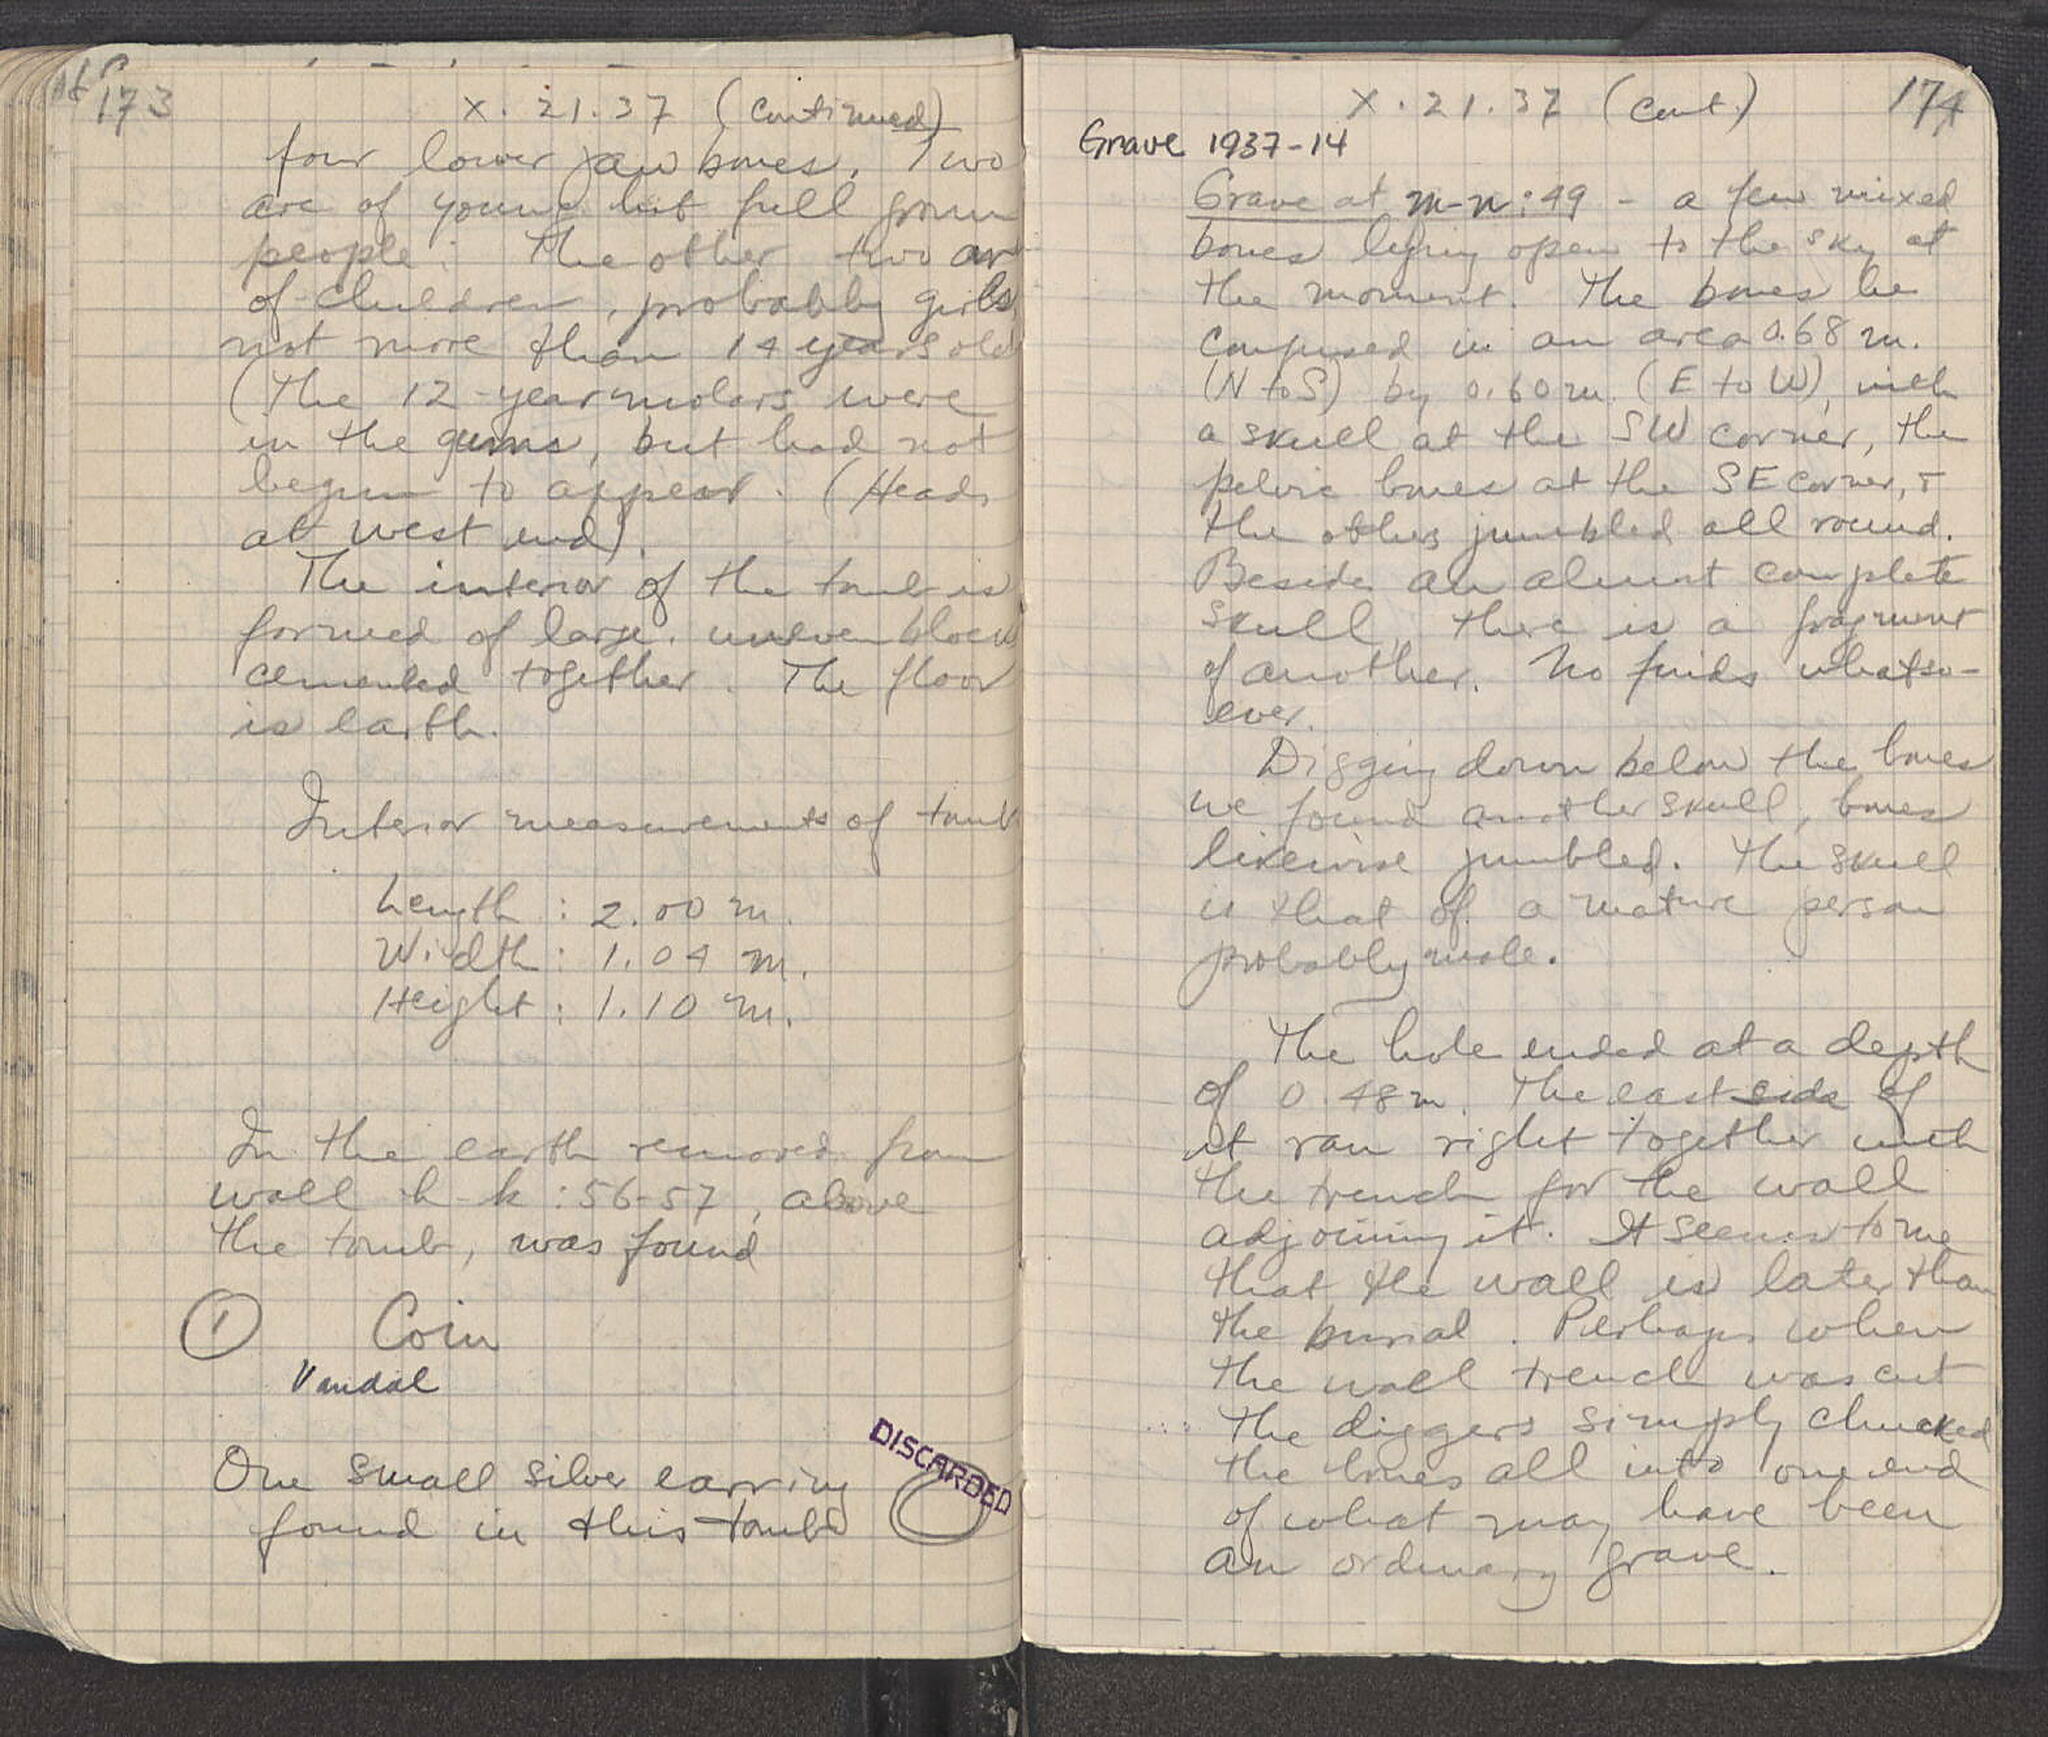 173
X.21.37 (continued)
four lower jaw bones. Two
are of young but full grown
people. The other two are
of children, probably girls
not more than 14 years old
(The 12-year molars were
in the gums, but had not
begun to appear. (Heads
at west end).
The interior of the tomb is
formed of large, uneven blocks
cemented together. The floor
is earth.
Interior measurements of tomb
Length : 2.00 m.
Width : 1.04 m.
Height : 1.10 m.
In the earth removed from
wall h-k : 56-57, above
the tomb, was found
1 Coin
Vandal
One small silver earring
found in this tomb
DISCARDED
174
X.21.37 (cont.)
Grave 1937-14
Grave at m-n:49 - a few mixed
bones lying open to the sky at
the moment. The bones lie
confused in an area 0.68 m.
(N to S) by 0.60 m. (E to W), with
a skull at the SW corner, the
pelvic bones at the SE corner, +
the others jumbled all round.
Beside an almost complete
skull, there is a fragment
of another. No finds whatso-
ever.
Digging down below the bones
we found another skull, bones
likewise jumbled. The skull
is that of a mature person
probably male.
The hole ended at a depth
of 0.48 m. The east side of
it ran right together with
the trench for the wall
adjoining it. It seems to me
that the wall is later than
the burial. Perhaps when
the wall trench was cut
the diggers simply chucked
the bones all into one end
of what may have been
an ordinary grave.